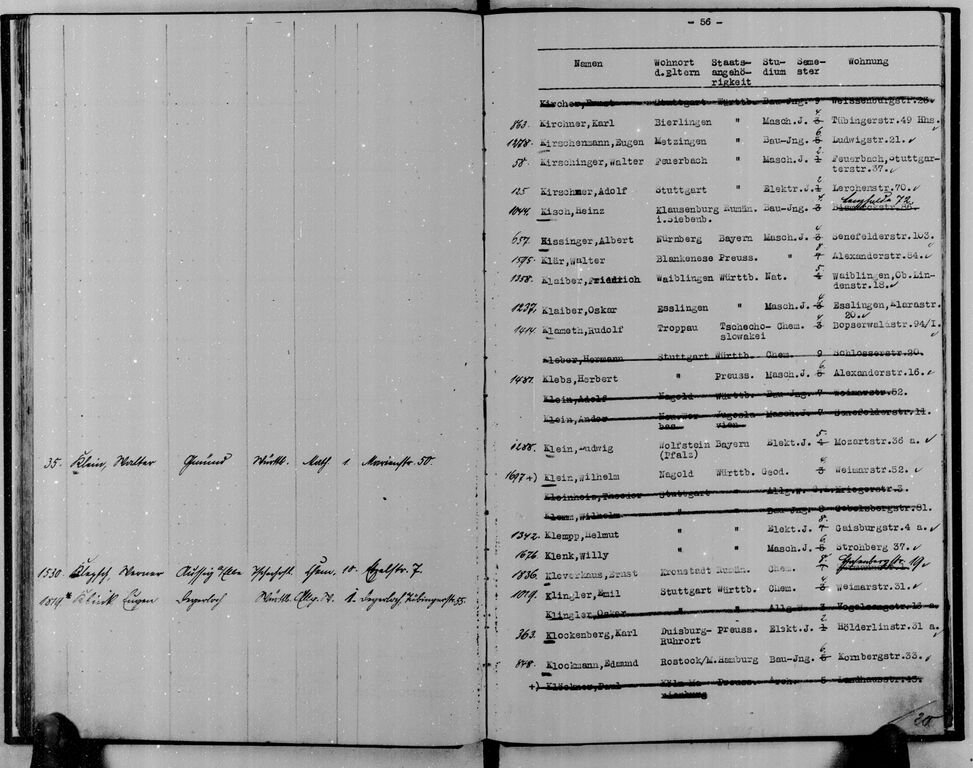 35. Klein, Walter Gmünd Württ. Math. 1. Marienstr. 50.
1530. Werner Aussig a/Elbe Chem. 10.
1819* Eugen Degerloch Württ. Allg. W. 1. Degerloch, Tübingerstr. 55.
- 56 -
Namen Wohnort Staats- Stu- Seme- Wohnung
d.Eltern angehö- dium ster
rigkeit
Kircher,Ernst Stuttgart Württb. Bau-Jng. 9 Weissenburgstr.28.
4
863. Kirchner,Karl Bierlingen " Masch.J. 3 Tübingerstr.49 Hhs.
6
1278. Kirschenmann,Eugen Metzingen " Bau-Jng. 5 Ludwigstr.21.
2
58. Kirschinger,Walter Feuerbach " Masch.J. 1 Feuerbach,Stuttgar-
terstr.37.
2
125 Kirschmer,Adolf Stuttgart " Elektr.J. 1 Lerchenstr.70.
4
1044. Kisch,Heinz Klausenburg Rumän. Bau-Jng. 3 Bismarckstr.86.
i.Siebenb.
4
657. Kissinger,Albert Nürnberg Bayern Masch.J. 3 Senefelderstr.103.
8
1595. Klär,Walter Blankenese Preuss. " Alexanderstr.84.
5
1358. Klaiber,Friedrich Waiblingen Württb. Nat. 4 Waiblingen,Ob.Lin-
denstr.18.
4
1237. Klaiber,Oskar Esslingen " Masch.J. 3 Esslingen,Klarastr.
20.
4
1414. Klameth,Rudolf Troppau Tschecho- Chem. 3 Bopserwaldstr.94/I.
slowakei
Kleber,Hermann Stuttgart Württb. Chem. 9 Schlosserstr.20.
6
1487. Klebs,Herbert " Preuss. Masch.J. 5 Alexanderstr.16.
Klein,Adolf Nagold Württb. Bau-Jng. 7 Weimarstr.52.
Klein,Andor Jugosla- Masch.J. 7 Senefelderstr.11.
vien
5.
1288. Klein,Ludwig Wolfstein Bayern Elekt.J. 4 Mozartstr.36 a.
(Pfalz)
4
1697 +) Klein,Wilhelm Nagold Württb. Geod. 3 Weimarstr.52.
Kleinheis,Theodor Stuttgart " Allg.W. Kriegerstr.3.
Klemm,Wilhelm " " Bau-Jng. Gebelsbergstr.81.
8.
1342. Klempp,Helmut " " Elekt.J. 7 Gaisburgstr.4 a.
6
1676 Klenk,Willy " " Masch.J. 5 Strohberg 37.
8
1836. Kleverkaus,Ernst Kronstadt Rumän. Chem. 7 19
4
1019. Klingler,Emil Stuttgart Württb. Chem. 3 Weimarstr.31.
Klingler,Oskar " " Allg.W. 3 Vogelsangstr.13 a.
2
363. Klockenberg,Karl Duisburg- Preuss. Elekt.J. 1 Hölderlinstr.31 a.
Ruhrort
6
848. Klockmann,Edmund Rostock/M. Hamburg Bau-Jng. 5 Kornbergstr.33.
+) Klöckner,Paul Preuss. Arch. 5 Landhausstr.43.
20